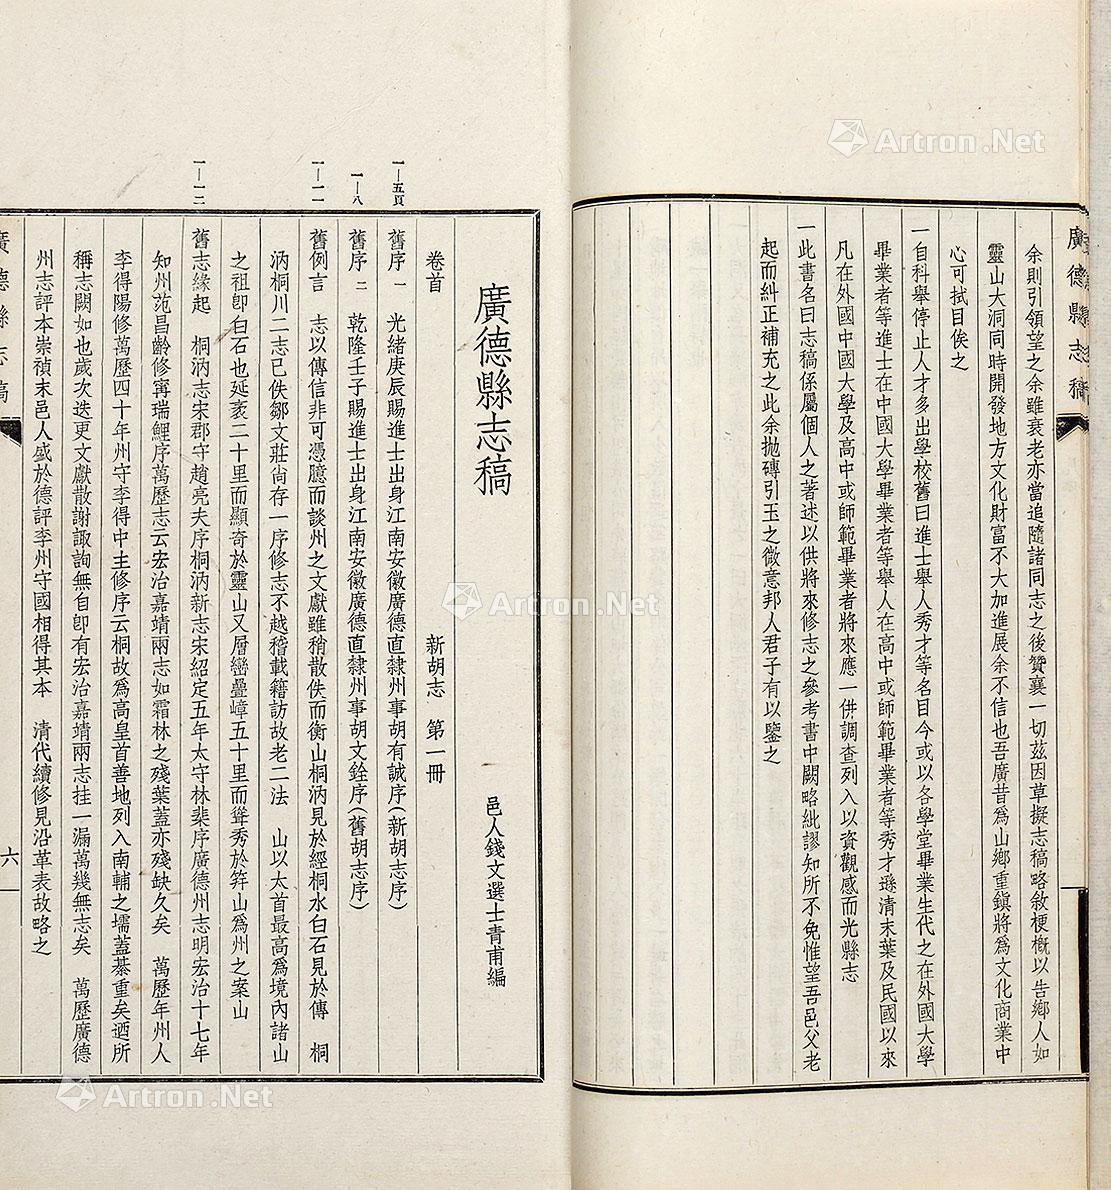 余則引領望之余雖衰老亦當追隨諸同志之後贊襄一切茲因草擬志稿略敘梗概以告鄉人如
靈山大洞同時開發地方文化財富不大加進展余不信也吾廣昔為山鄉重鎮將為文化商業中
心可拭目俟之
一自科舉停止人才多出學校舊曰進士舉人秀才等名目今或以各學堂畢業生代之在外國大學
畢業者等進士在中國大學畢業者等舉人在高中或師範畢業者等秀才遜清末葉及民國以來
凡在外國中國大學及高中或師範畢業者將來應一併調查列入以資觀感而光縣志
一此書名曰志稿係屬個人之著述以供將來修志之參考書中闕略紕謬知所不免惟望吾邑父老
起而糾正補充之此余拋磚引玉之微意邦人君子有以鑒之
廣德縣志稿
廣德縣志稿
邑人錢文選士青甫編
卷首 新胡志 第一冊
一—五頁
舊序一 光緒庚辰賜進士出身江南安徽廣德直隸州事胡有誠序(新胡志序)
一—八
舊序二 乾隆壬子賜進士出身江南安徽廣德直隸州事胡文銓序(舊胡志序)
一—一一
舊例言 志以傳信非可憑臆而談州之文獻雖稍散佚而衡山桐汭見於經桐水白石見於傳 桐
汭桐川二志已佚鄒文莊尚存一序修志不越稽載籍訪故老二法 山以太首最高為境內諸山
之祖即白石也延袤二十里而顯奇於靈山又層巒疊嶂五十里而聳秀於筓山為州之案山
一—一二
舊志緣起 桐汭志宋郡守趙亮夫序桐汭新志宋紹定五年太守林棐序廣德州志明宏治十七年
知州范昌齡修甯瑞鯉序萬歷志云宏治嘉靖兩志如霜林之殘葉蓋亦殘缺久矣 萬歷年州人
李得陽修萬歷四十年州守李得中主修序云桐故為高皇首善地列入南輔之壖蓋綦重矣迺所
稱志闕如也歲次迭更文獻散謝諏詢無自即有宏治嘉靖兩志挂一漏萬幾無志矣 萬歷廣德
州志評本崇禎末邑人盛於德評李州守國相得其本 清代續修見沿革表故略之
廣德縣志稿
六
Artron.Net
Artron.Net
Artron.Net